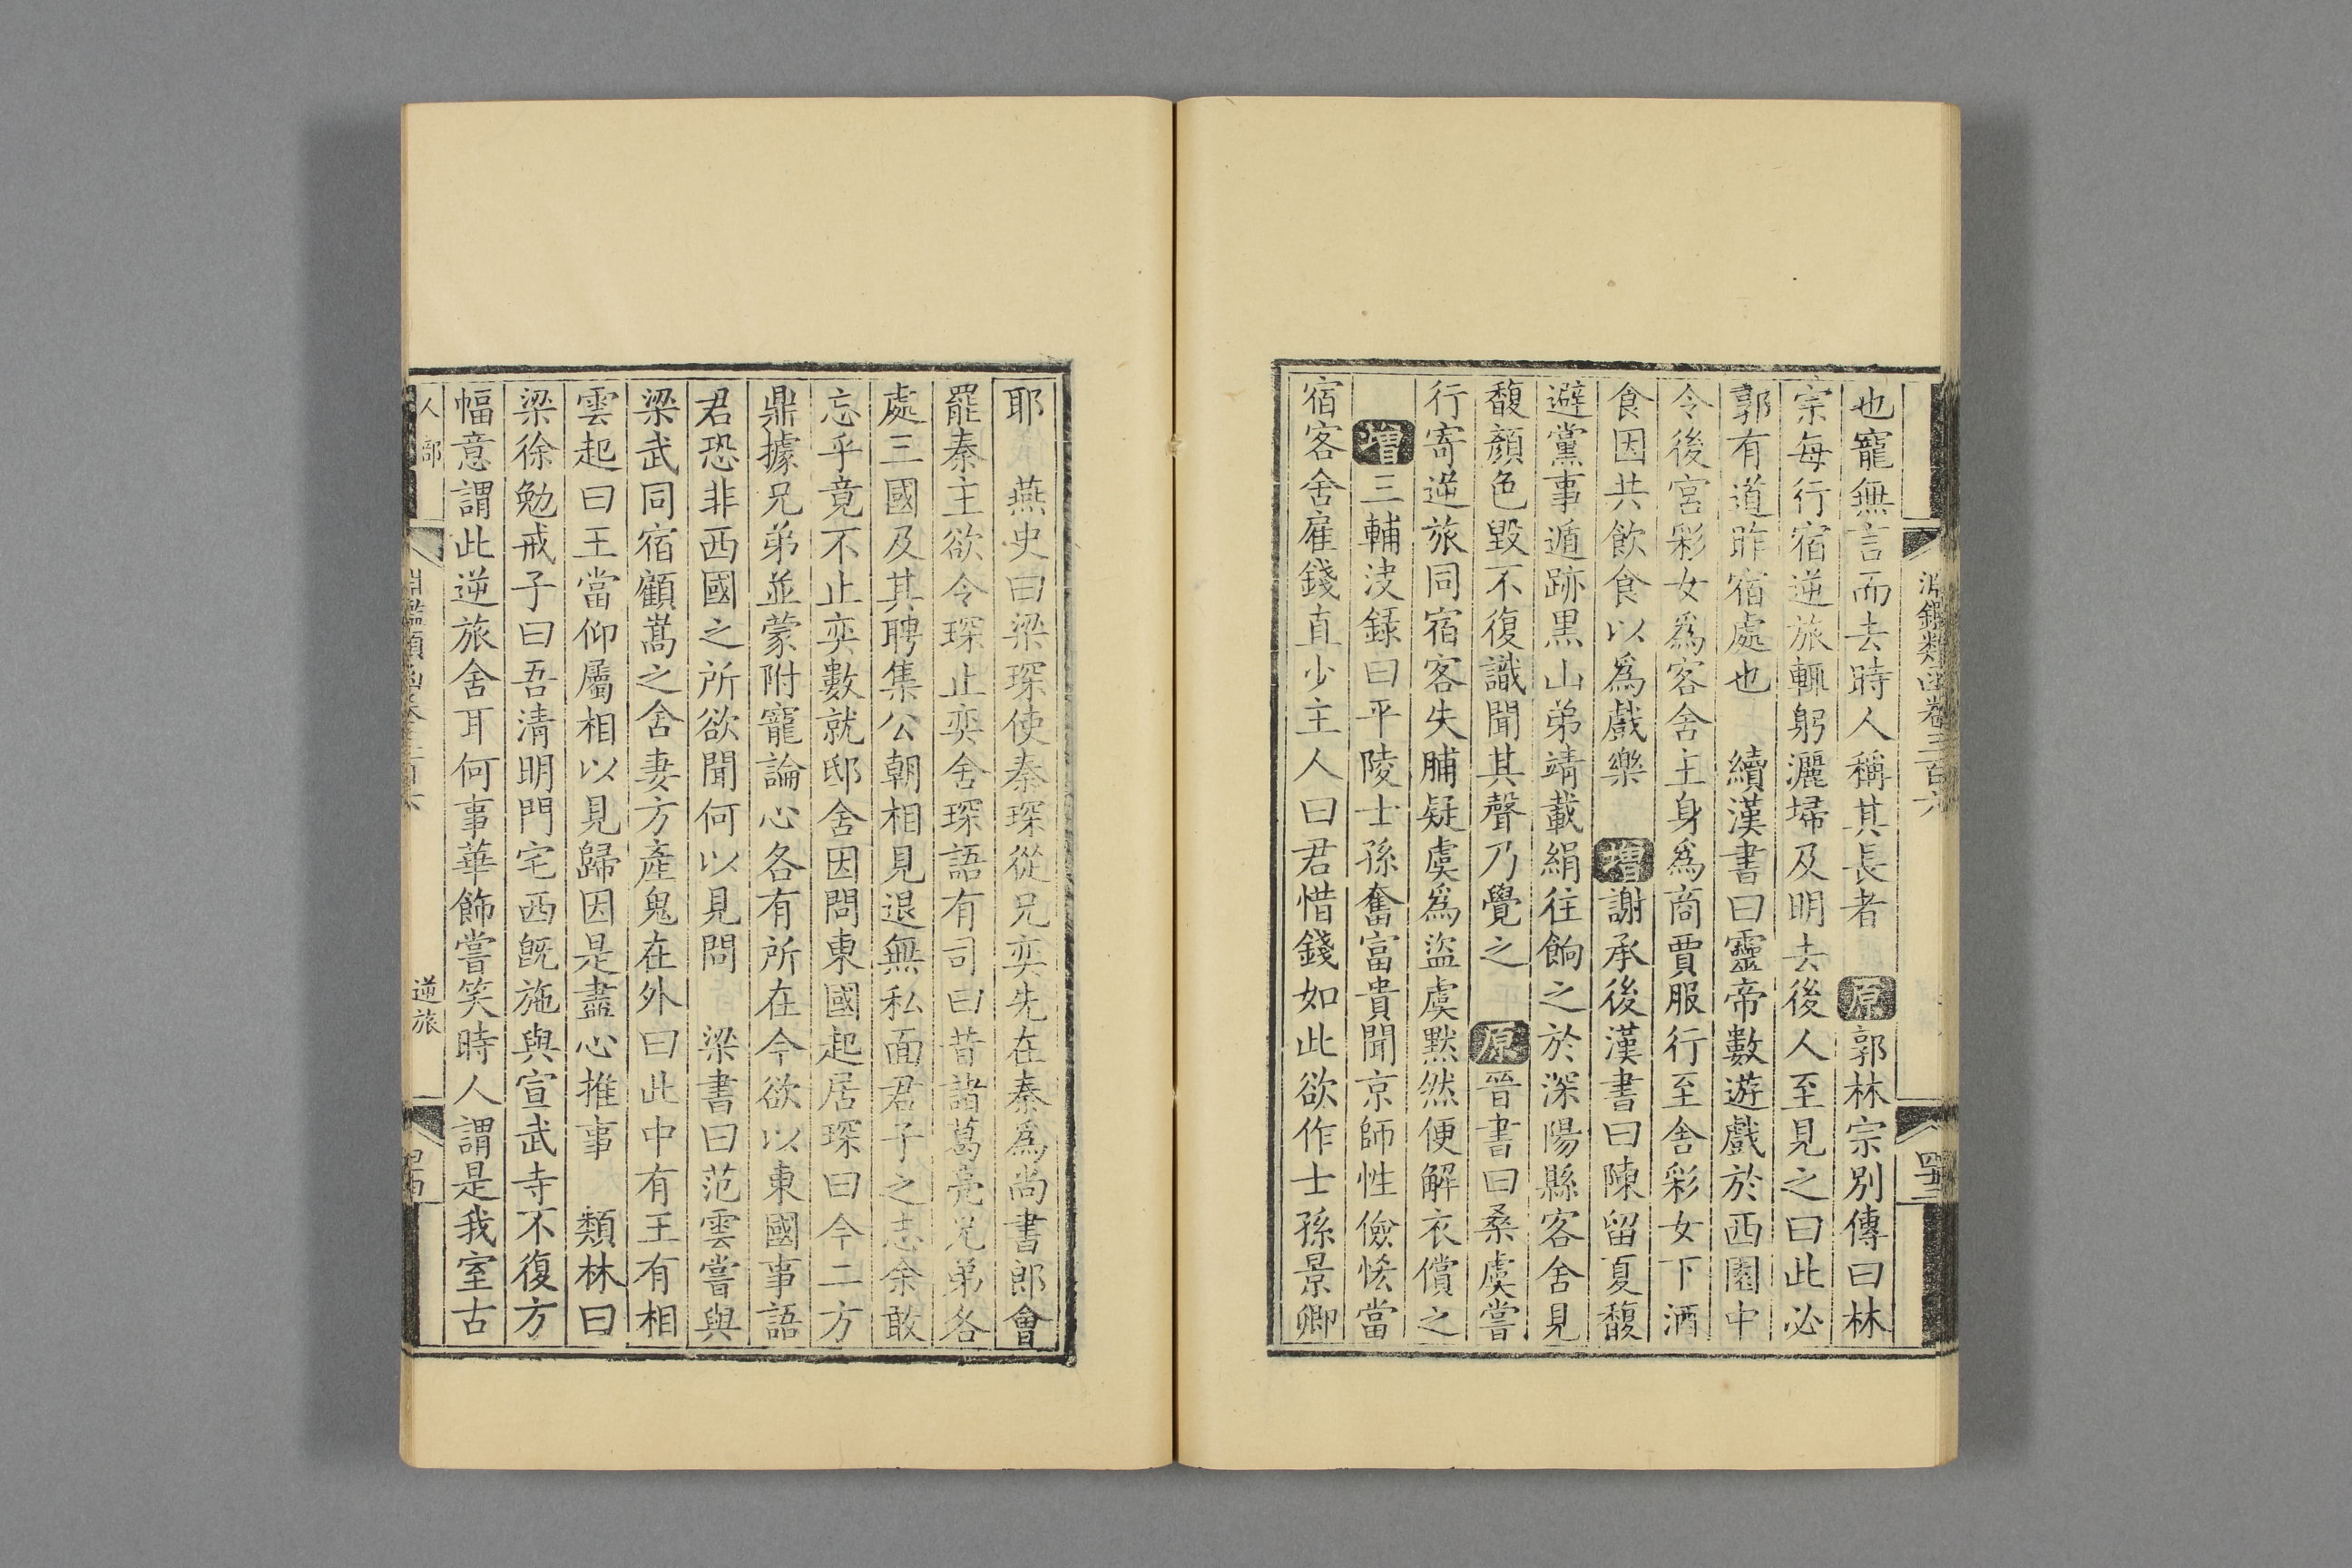 淵鑑類函卷三百六
也寵無言而去時人稱其長者 原 郭林宗別傳曰林
宗每行宿逆旅輒躬灑埽及明去後人至見之曰此必
郭有道昨宿處也 續漢書曰靈帝數遊戲於西園中
令後宮彩女爲客舍主身爲商賈服行至舍彩女下酒
食因共飲食以爲戲樂 增 謝承後漢書曰陳留夏馥
避黨事遁跡黑山弟靖載絹往餉之於深陽縣客舍見
馥顏色毀不復識聞其聲乃覺之 原 晉書曰桑虞嘗
行寄逆旅同宿客失脯疑虞爲盜虞默然便解衣償之
增 三輔决錄曰平陵士孫奮富貴聞京師性儉恡當
宿客舍雇錢直少主人曰君惜錢如此欲作士孫景卿
耶 燕史曰梁琛使秦琛從兄奕先在秦爲尚書郎會
罷秦主欲令琛止奕舍琛語有司曰昔諸葛亮兄弟各
處三國及其聘集公朝相見退無私面君子之志余敢
忘乎竟不止奕數就邸舍因問東國起居琛曰今二方
鼎據兄弟並蒙附寵論心各有所在今欲以東國事語
君恐非西國之所欲聞何以見問 梁書曰范雲嘗與
梁武同宿顧暠之舍妻方產鬼在外曰此中有王有相
雲起曰王當仰屬相以見歸因是盡心推事 類林曰
梁徐勉戒子曰吾清明門宅西旣施與宣武寺不復方
幅意謂此逆旅舍耳何事華飾嘗笑時人謂是我室古
人部
逆旅